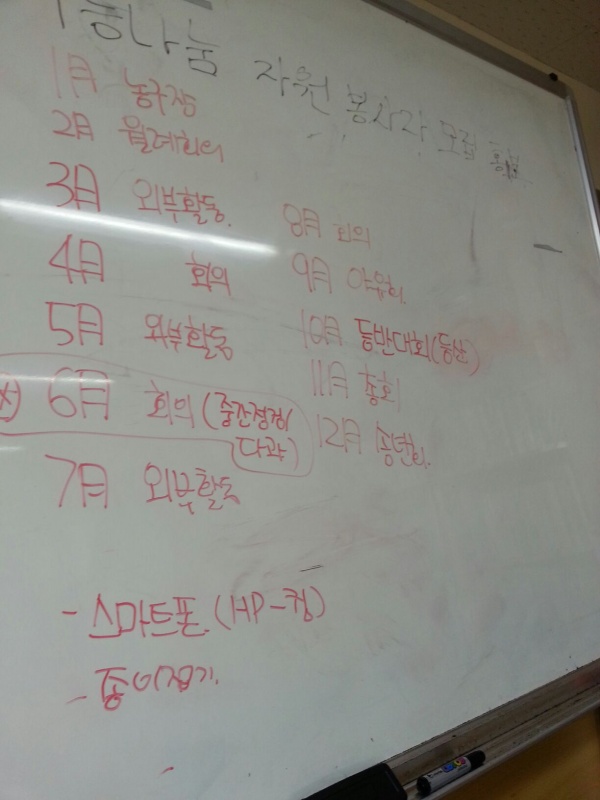 능나눔 자원 봉사자 모집 홍보
1月 농구장
2月 월례회의
3月 외부활동.
4月 회의
5月 외부활동
6月 회의 (중간점검/
다과)
7月 외부활동
8月 회의
9月 야유회.
10月 등반대회(등산)
11月 총회
12月 송년회.
- 스마트폰. (HP-컴)
- 종이접기.